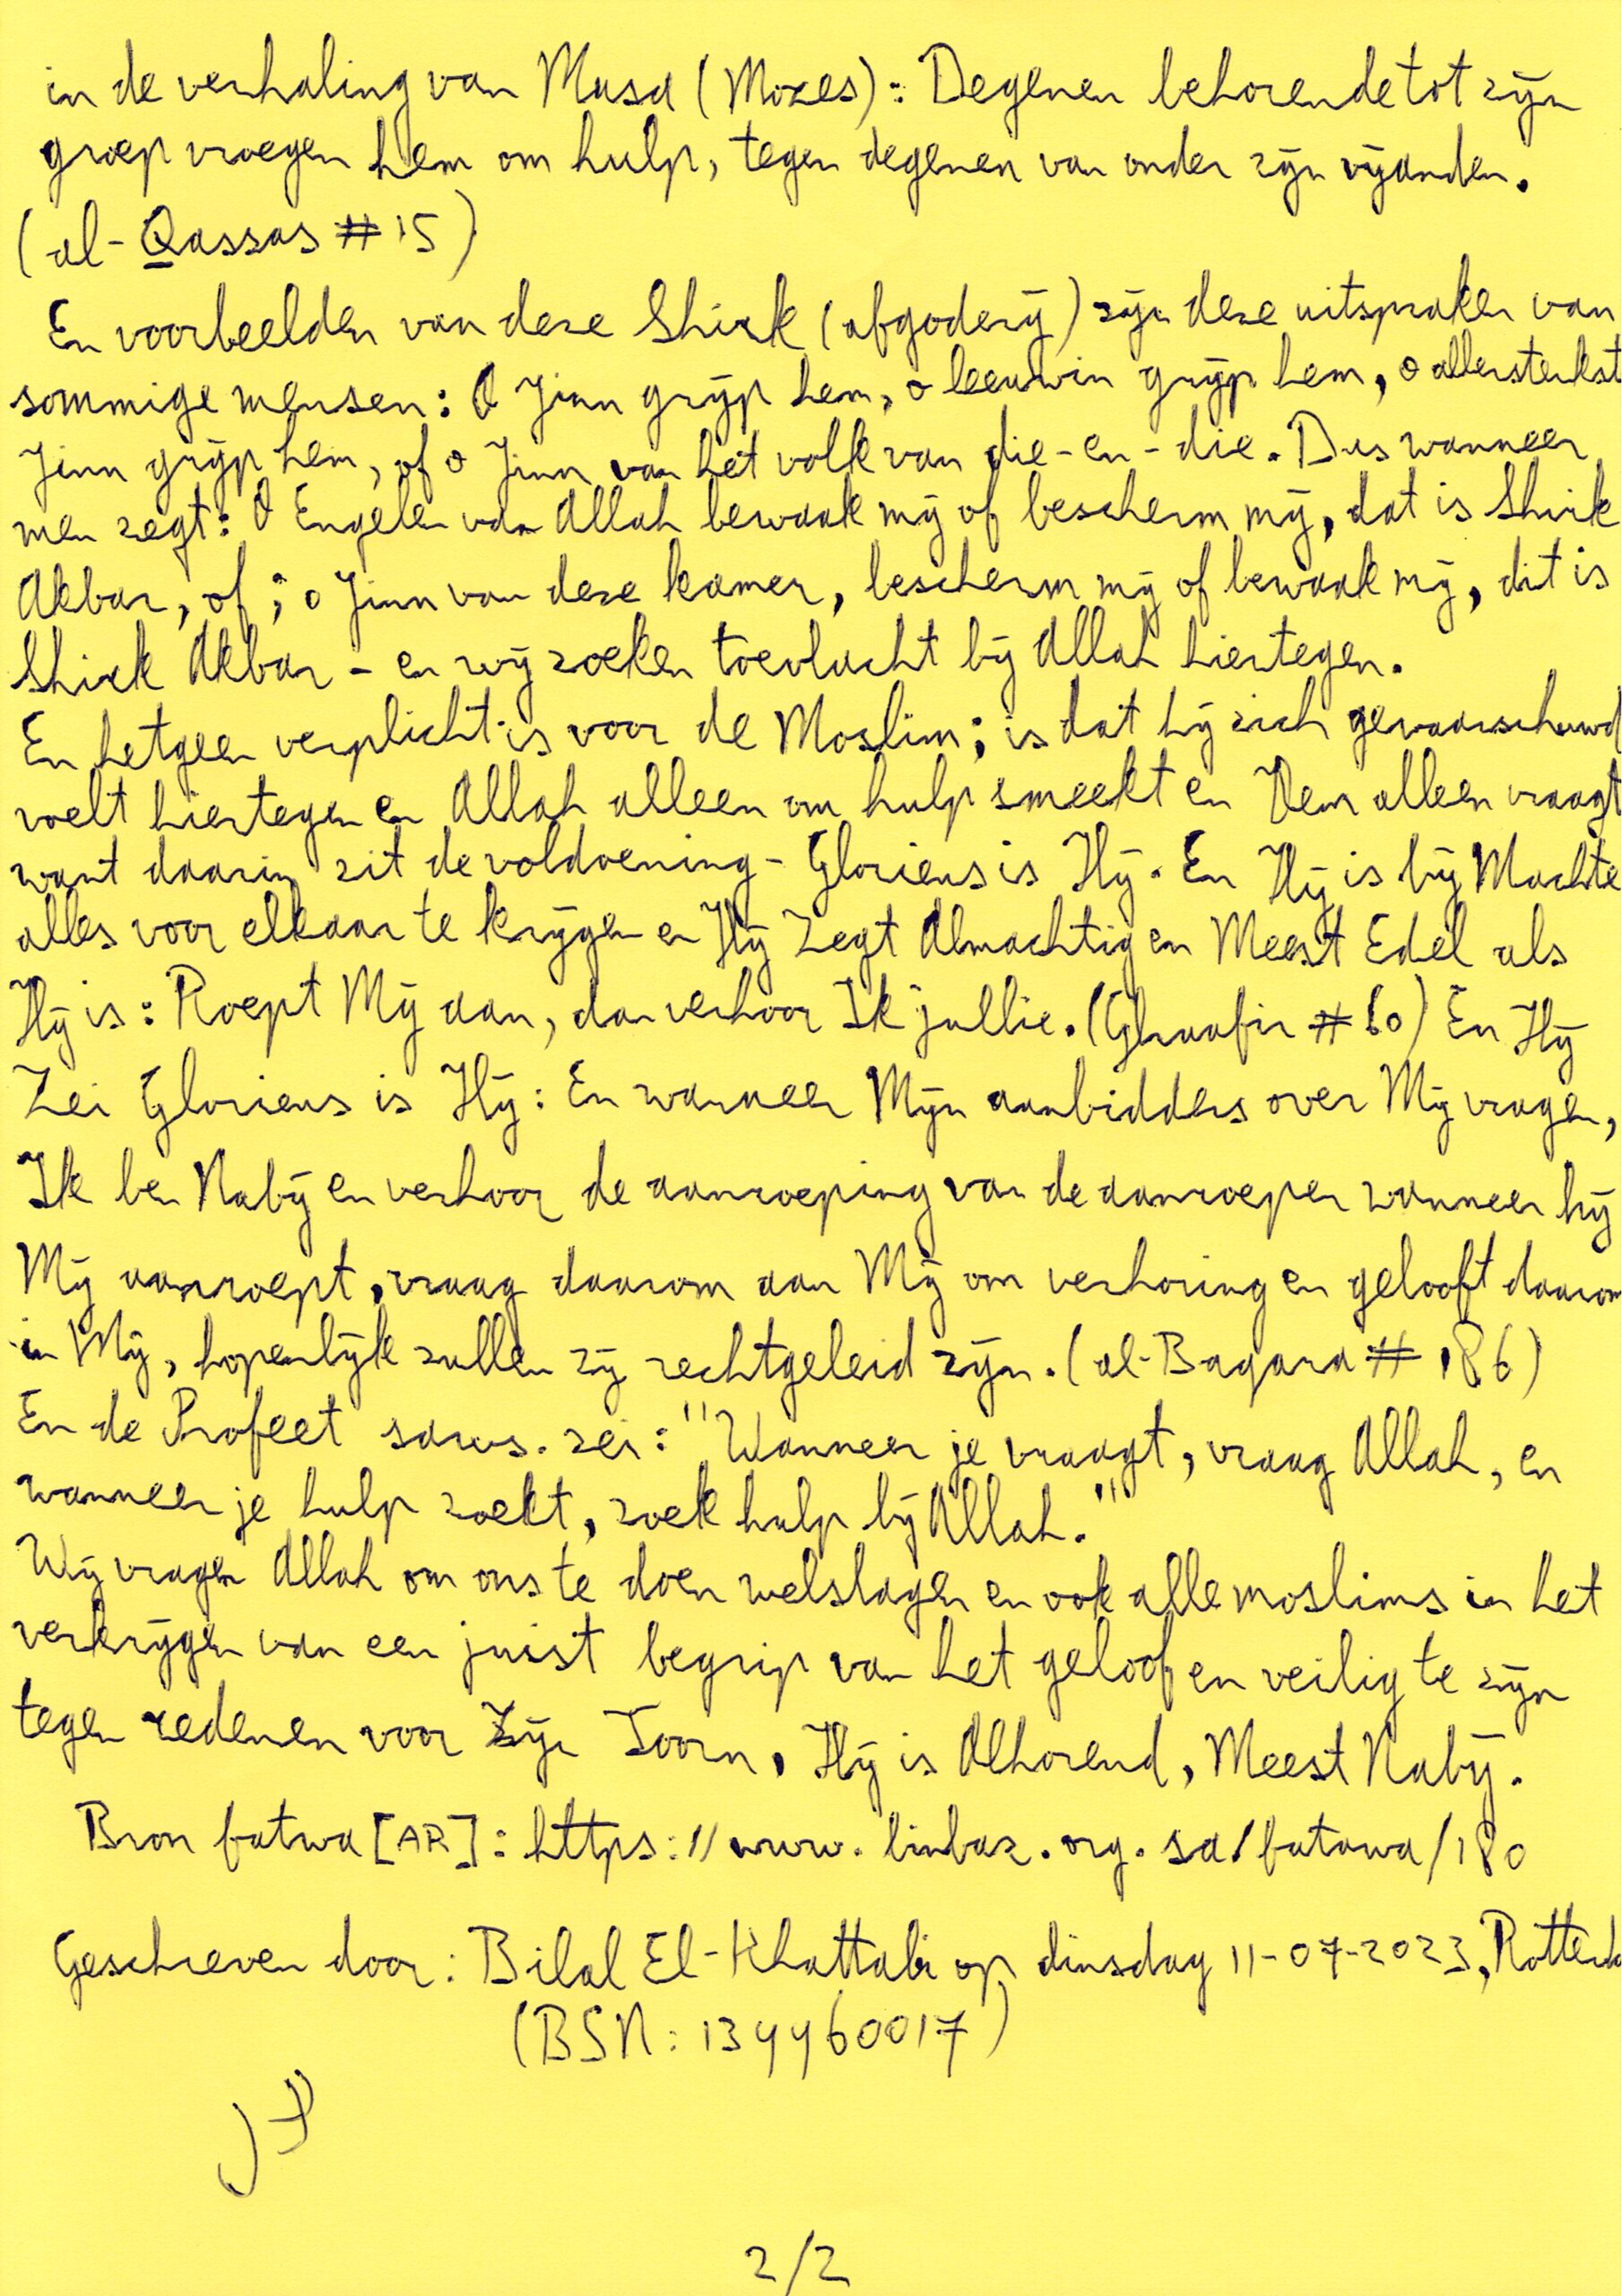 in de verhaling van Musa (Mozes): Degenen behorende tot zijn
groep vroegen hem om hulp, tegen degenen van onder zijn vijanden.
(al-Qassas #15)
En voorbeelden van deze Shirk (afgoderij) zijn deze uitspraken van
sommige mensen: O Jinn grijp hem, o leeuwin grijp hem, o allersterkst
Jinn grijp hem, of o Jinn van het volk van die-en-die. Dus wanneer
men zegt: O Engelen van Allah bewaak mij of bescherm mij, dat is Shirk
Akbar, of; o Jinn van deze kamer, bescherm mij of bewaak mij, dit is
Shirk Akbar - en wij zoeken toevlucht bij Allah hiertegen.
En hetgeen verplicht is voor de Moslim; is dat hij zich gewaarschuwd
voelt hiertegen en Allah alleen om hulp smeekt en Hem alleen vraagt
want daarin zit de voldoening - Glorieus is Hij. En Hij is bij Machte
alles voor elkaar te krijgen en Hij Zegt Almachtig en Meest Edel als
Hij is: Roept Mij aan, dan verhoor Ik jullie. (Ghaafir #60) En Hij
Zei Glorieus is Hij: En wanneer Mijn aanbidders over Mij vragen,
Ik ben Nabij en verhoor de aanroeping van de aanroeper wanneer hij
Mij aanroept, vraag daarom aan Mij om verhoring en gelooft daarom
in Mij, hopenlijk zullen zij rechtgeleid zijn. (al-Baqara #186)
En de Profeet saws. zei: "Wanneer je vraagt, vraag Allah, en
wanneer je hulp zoekt, zoek hulp bij Allah."
Wij vragen Allah om ons te doen welslagen en ook alle moslims in het
verkrijgen van een juist begrip van het geloof en veilig te zijn
tegen redenen voor Zijn Toorn, Hij is Alhorend, Meest Nabij.
Bron fatwa [AR]: https://www.binbaz.org.sa/fatawa/180
Geschreven door: Bilal El-Khattabi op dinsdag 11-07-2023, Rotterd
(BSN: 134460017)
2/2